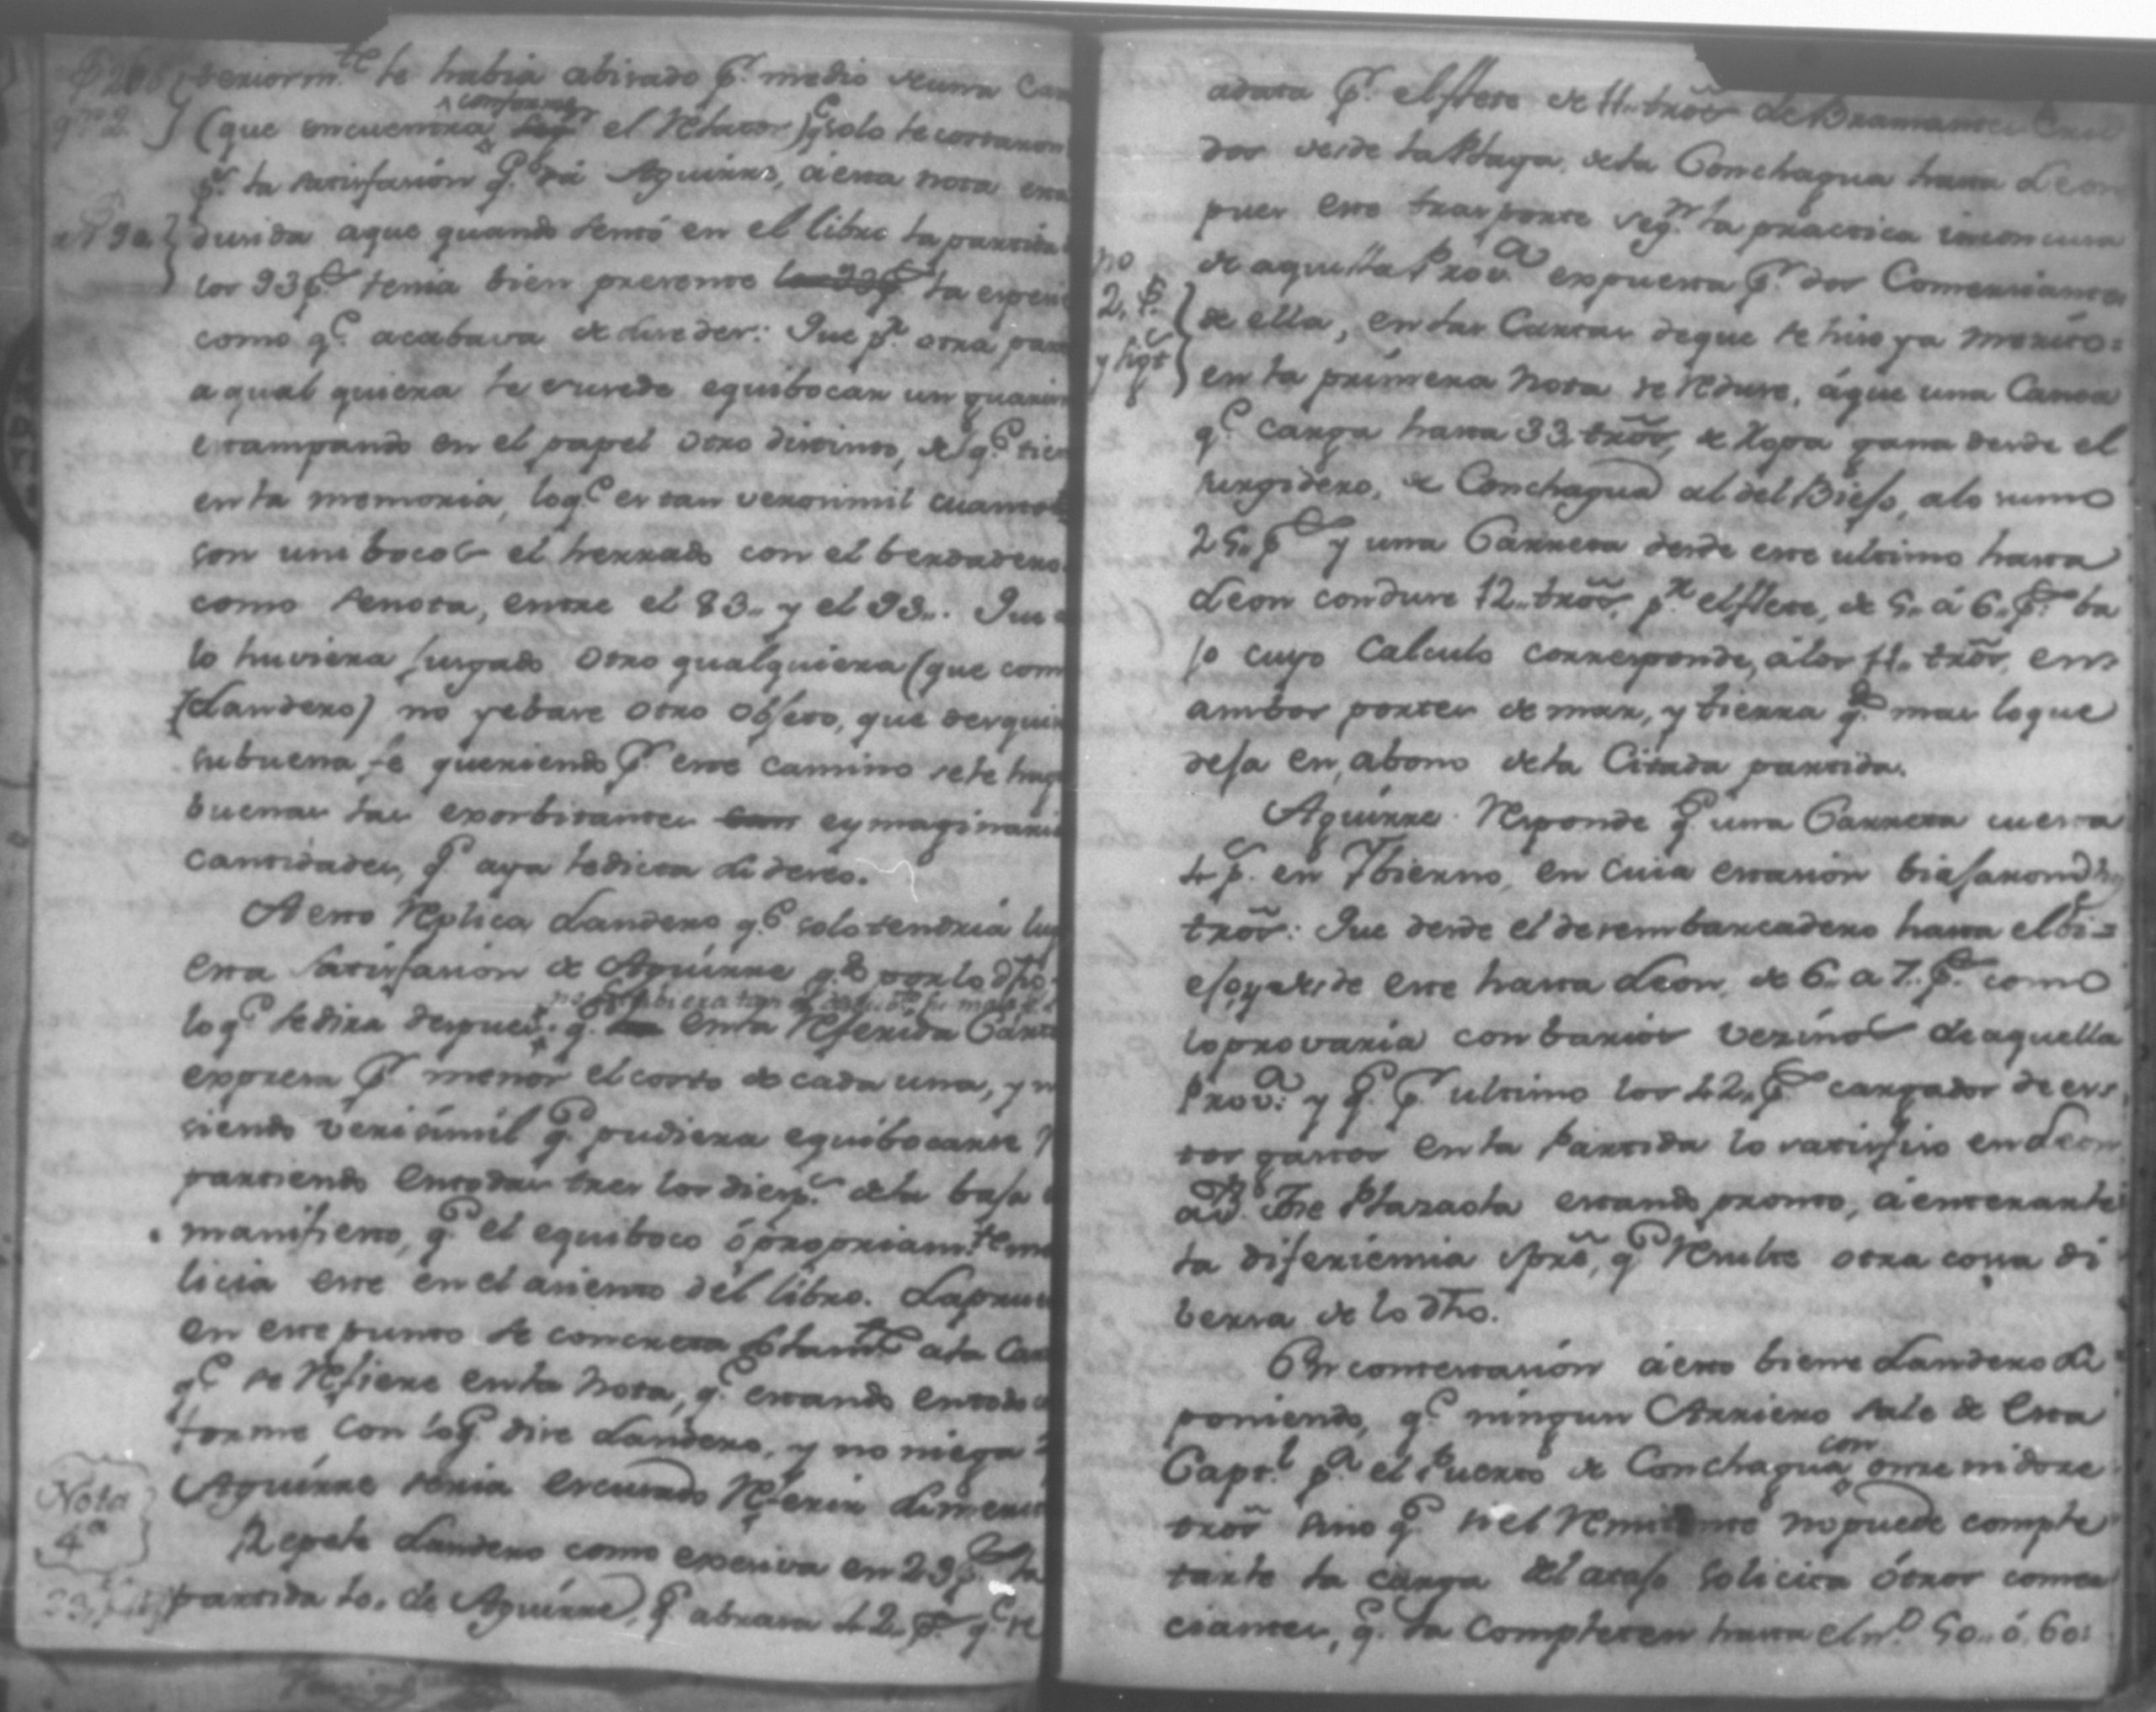 teriorm.te le habia abisado p.r medio de una Car
(que encuentra conforme el Relator) q.e solo le costaron
p.r la satisfasión q.e dá Aguirre, á esta nota era
dusida a que quando sentó en el libro la partida
los 93 p.s tenia bien presente los 93 p.s la esperi
como q.e acababa de suseder: Que p.r otra parte
a qual quiera le susede equibocar un guaris
estampando en el papel otro distinto, del q.e tien
en la memoria, lo q.e es tan verosimil cuanto
son unibocos el herrado con el berdadero
como se nota, entre el 83.. y el 93.. Que
lo huviera jusgado otro qualquiera (que com
(Landero) no llebase otro objeto, que desqui
su buena fé queriendo p.r este camino se le haga
buenas las exorbitantes e ymaginaria
cantidades, q.e aya le dicta su deseo.
A esto Replica Landero q.e solo tendria lug
esta satisfasion de Aguirre q.do por lo dho
lo q.e se dira despues q.e en la Referida Carta
expresa p.r menor el costo de cada una, y n
siendo verisimil q.e pudiera equibocarse
partiendo en todas tres los dies p.s de la baja
manifiesto, q.e el equiboco ó propriam.te ma
licia este en el asiento del libro. La prue
en este punto se concreta solam.te a la Car
q.e se Refiere en la Nota, q.e estando en todo c
forme con lo q.e dise Landero, y no niega
Aguirre seria escusado Referir
Nota 4.a
Repete Landero como exesiva en 29 p.s la
partida 40. de Aguirre, q.e abrasa 42. p.s q.e se
adata p.r el flete de 11.. trõs de Bramantes Crul
dos desde la Playa de la Conchagua hasta Leon
pues este trasporte seg.n la practica inconcusa
no 2. p.s y sig.te
de aquella Prov.a expuesta p.r dos Comersiantes
de ella, en las Cartas de que se hiso ya merito
en la primera Nota se Reduse, á que una Canoa
q.e carga hasta 33 trõs, de Ropa gana desde el
surgidero, de Conchagua al del Biejo, a lo sumo
25.. p.s y una Carreta desde este ultimo hasta
Leon conduse 12.. trõs, p.r el flete, de 5.. á 6.. p.s ba
jo cuyo Calculo corresponde, á los 11.. trõs, en
ambos portes de mar, y tierra q.to mas lo que
deja en abono de la Citada partida.
Aguirre Responde q.e una Carreta cuesta
4 p.s en Ybierno, en cuia estasión biajaron dhos
trõs: Que desde el desembarcadero hasta el bi=
ejo, y desde este hasta Leon, de 6.. a 7.. p.s como
lo provaria con barios vesinos de aquella
Prov.a y q.e p.r ultimo los 42.. p.s cargados de es
tos gastos en la Partida lo satisfiso en Leon
a D.n Jose Plazaola estando pronto, á enterarle
la diferiensia spre, q.e Resulte otra cosa di
bersa de lo dho.
En contestasión á esto biene Landero di
poniendo, q.e ningun Arriero sale de esta
Cap.l p.a el Puerto de Conchagua con onse ni dose
trõs sino q.e si el Remitente no puede comple
tarle la carga del atajo solicita ótros comer
ciantes, q.e la completen hasta el n.o 50.. ó 60: